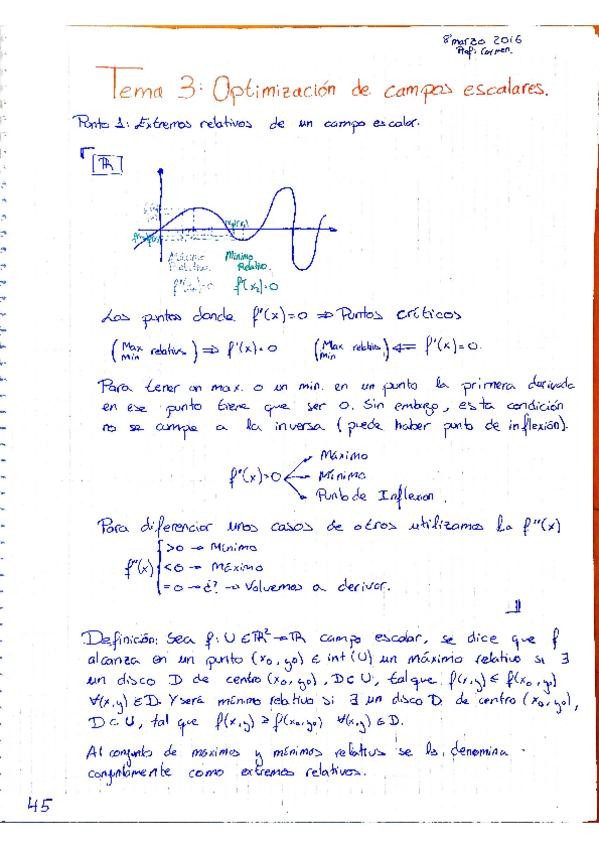 8 marzo 2016
Prof: Carmen.
Tema 3: Optimización de campos escalares.
Punto 1: Extremos relativos de un campo escalar.
ℝ
Máximo Mínimo
Relativo. Relativo.
f'(x₁)=0 f'(x₂)=0
Los puntos donde f'(x)=0 ⇒ Puntos críticos
(Max Min relativo) ⇒ f'(x)=0 (Max Min relativo) ⇍ f'(x)=0.
Para tener un max. o un min. en un punto la primera derivada
en ese punto tiene que ser 0. Sin embargo, esta condición
no se cumple a la inversa (puede haber punto de inflexión).
Máximo
f'(x)=0 Mínimo
Punto de Inflexion.
Para diferenciar unos casos de otros utilizamos la f''(x)
>0 → Mínimo
f''(x) <0 → Máximo
=0 → ¿? → Volvemos a derivar.
Definición: Sea f: U∈ℝ²→ℝ campo escalar, se dice que f
alcanza en un punto (x₀,y₀) ∈ int(U) un máximo relativo si ∃
un disco D de centro (x₀,y₀), D⊂U, tal que f(x,y) ≤ f(x₀,y₀)
∀(x,y)∈D. Y será mínimo relativo si ∃ un disco D de centro (x₀,y₀),
D⊂U, tal que f(x,y) ≥ f(x₀,y₀) ∀(x,y)∈D.
Al conjunto de máximos y mínimos relativos se los denomina
conjuntamente como extremos relativos.
45